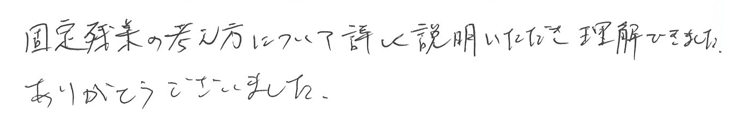 固定残業の考え方について詳しく説明いただき理解できました.
ありがとうございました.